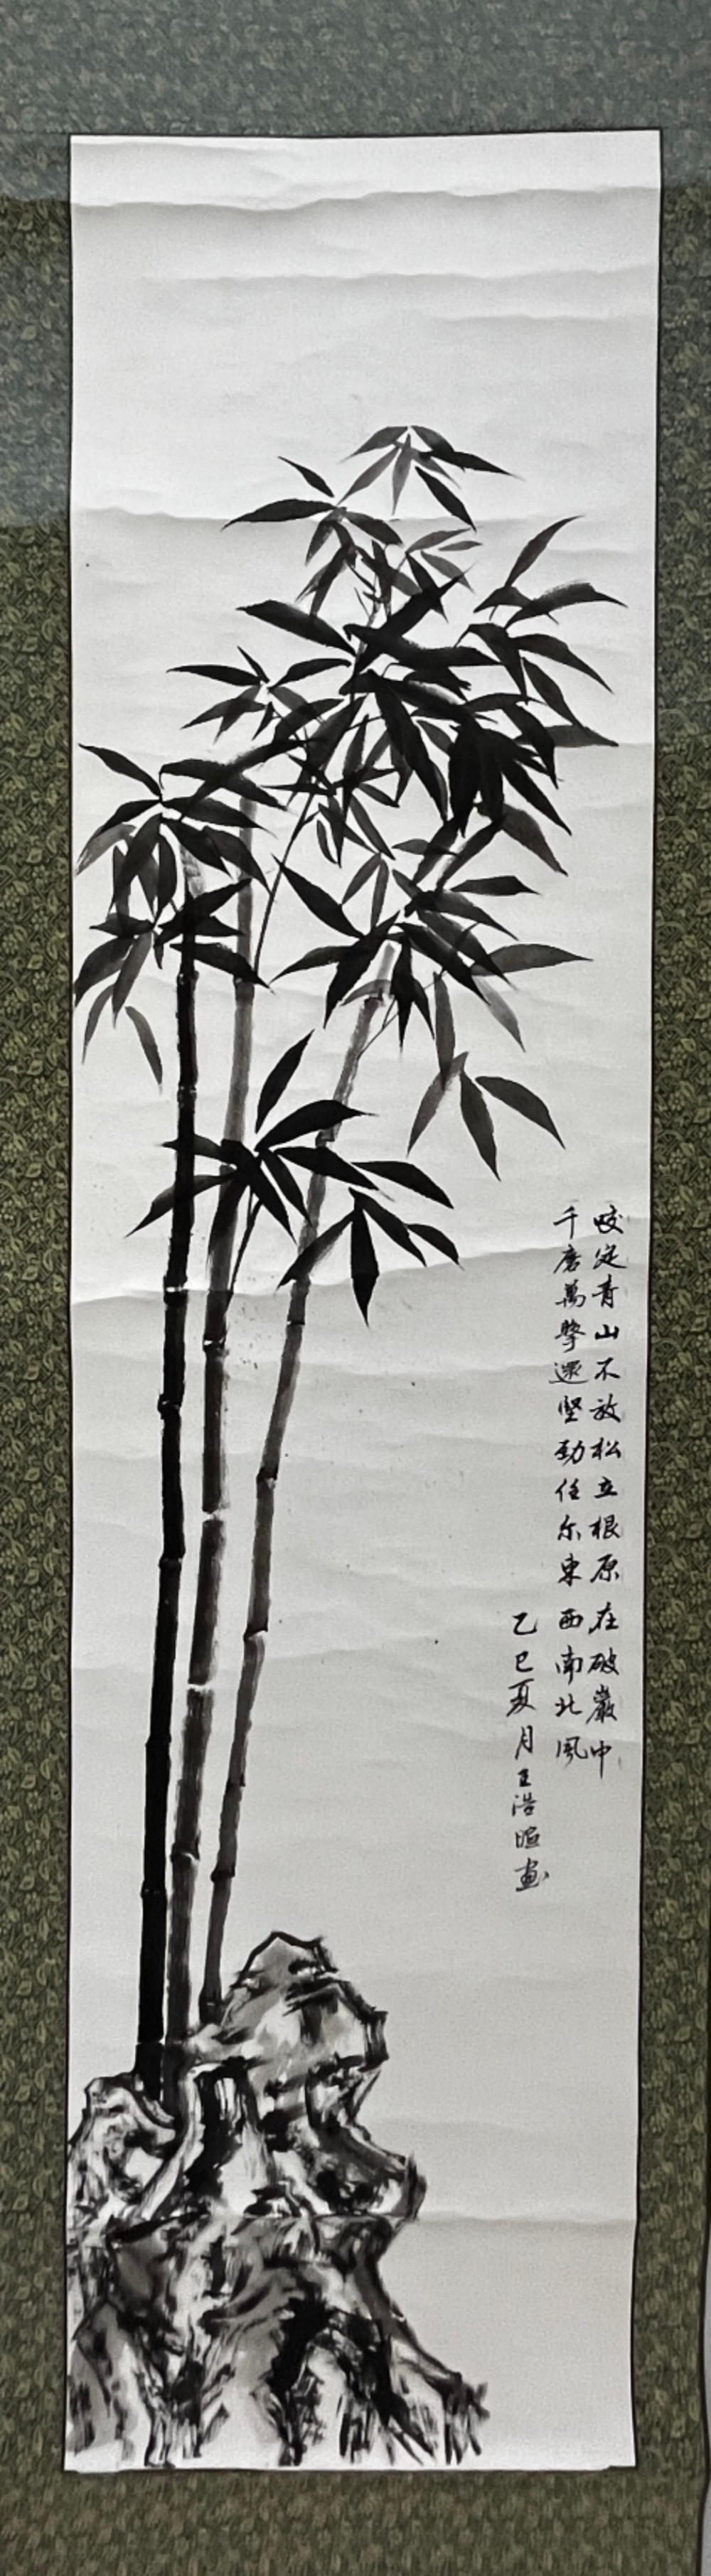 咬定青山不放松立根原在破巖中
千磨萬擊還堅劲任尔東西南北風
乙巳夏月王浩㫜画